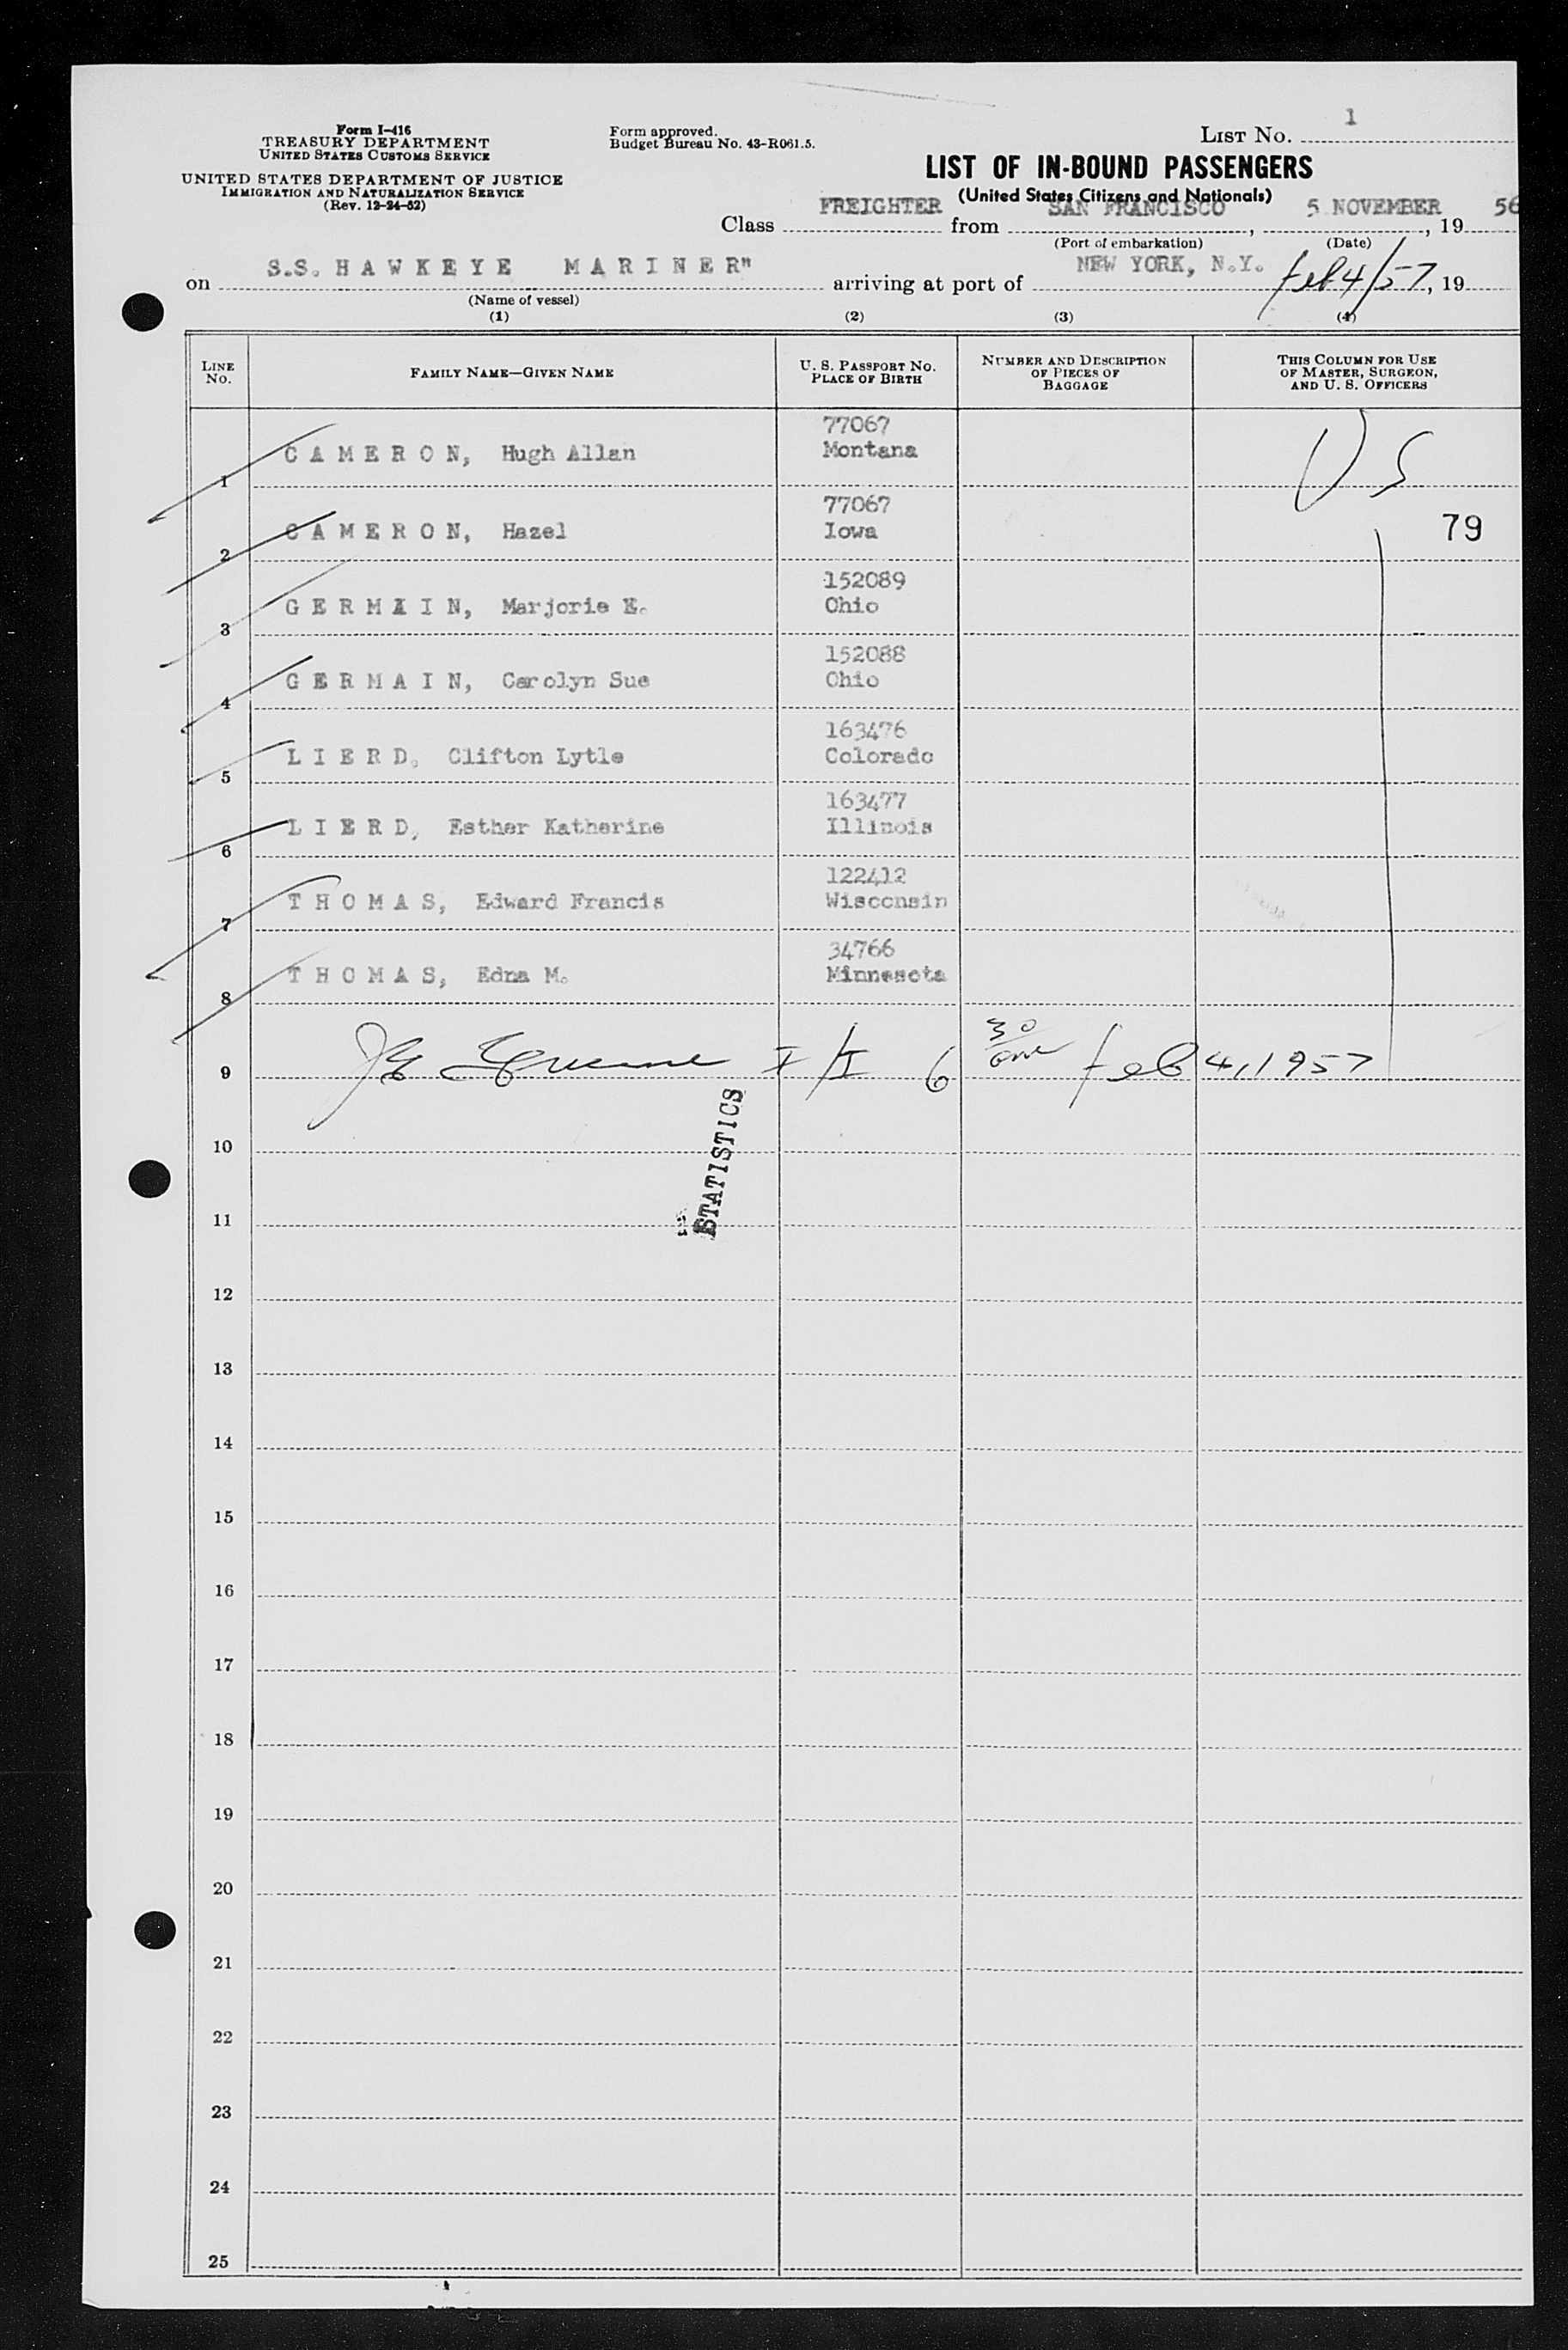 Form I-416
TREASURY DEPARTMENT
UNITED STATES CUSTOMS SERVICE
UNITED STATES DEPARTMENT OF JUSTICE
IMMIGRATION AND NATURALIZATION SERVICE
(Rev. 12-24-52)
Form approved.
Budget Bureau No. 43-R061.5.
LIST NO. 1
LIST OF IN-BOUND PASSENGERS
(United States Citizens and Nationals)
Class FREIGHTER from SAN FRANCISCO, 5 NOVEMBER, 19 56
(Port of embarkation) (Date)
on S.S. HAWKEYE MARINER" arriving at port of NEW YORK, N.Y. Feb 4/57, 19
(Name of vessel)
(1) (2) (3) (4)
LINE NO.
FAMILY NAME—GIVEN NAME
U. S. PASSPORT NO.
PLACE OF BIRTH
NUMBER AND DESCRIPTION
OF PIECES OF
BAGGAGE
THIS COLUMN FOR USE
OF MASTER, SURGEON,
AND U. S. OFFICERS
77067
1 CAMERON, Hugh Allan Montana US
77067
2 CAMERON, Hazel Iowa 79
152089
3 GERMAIN, Marjorie E. Ohio
152088
4 GERMAIN, Carolyn Sue Ohio
163476
5 LIERD, Clifton Lytle Colorado
163477
6 LIERD, Esther Katherine Illinois
122412
7 THOMAS, Edward Francis Wisconsin
34766
8 THOMAS, Edna M. Minnesota
9 6 30 Feb 4, 1957
STATISTICS
10
11
12
13
14
15
16
17
18
19
20
21
22
23
24
25